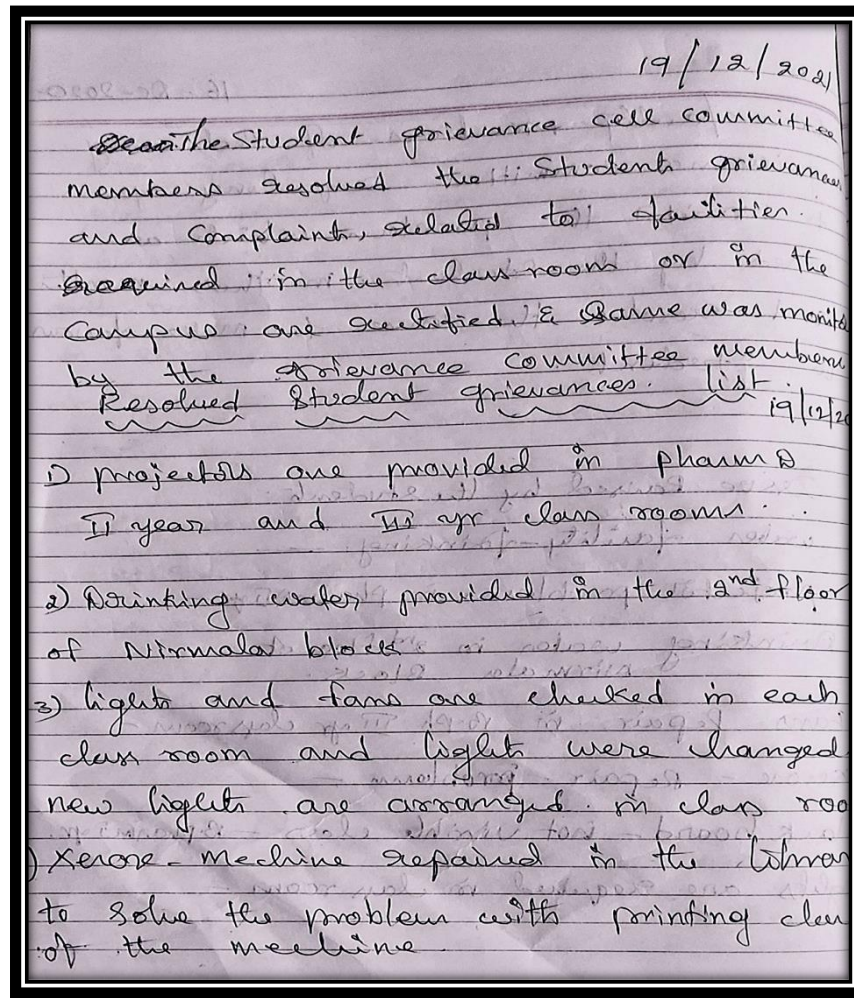 19/12/2021
The Student grievance cell committee
members resolved the Student grievance
and Complaints, related to facilities.
required in the class room or in the
Campus are rectified, & Same was monito
by the grievance committee members
Resolved Student grievances. list.
19/12/20
1) projectors are provided in pharm D
II year and III yr class rooms.
2) Drinking water provided in the 2nd floor
of Nirmala block
3) lights and fans are checked in each
class room and lights were changed
new lights are arranged in class roo
) Xerox-mechine repaired in the librar
to solve the problem with printing clea
of the mechine.